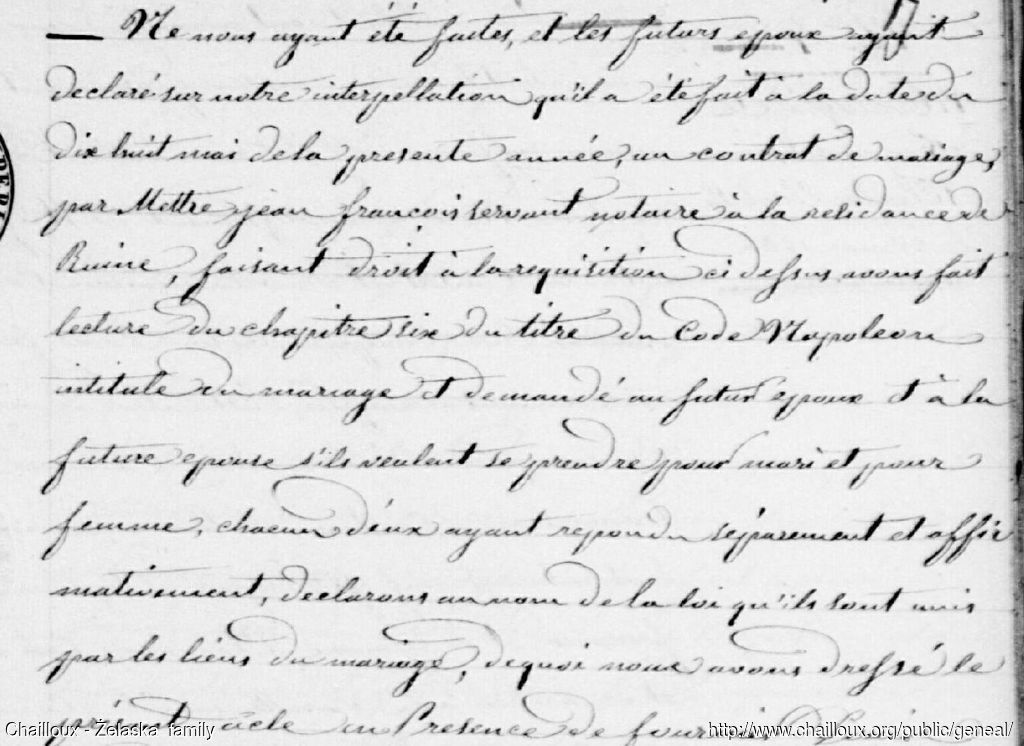 Ne nous ayant été faites, et les futurs epoux ayant
declaré sur notre interpellation qu'il a été fait à la date du
dix huit mai de la presente année, un contrat de mariage,
par Mettre jean francois servant notaire à la residance de
Ruine, faisant droit à la requisition ci dessus avons fait
lecture du chapitre six du titre du Code Napoleon
intitule du mariage et demandé au futur epoux et à la
future epouse s'ils veulent se prendre pour mari et pour
femme, chacun d'eux ayant repondu séparement et affir
mativement, declarons au nom de la loi qu'ils sont unis
par les liens du mariage, de quoi nous avons dressé le
présent acte en Presence de
Chailloux - Zelaska family
http://www.chailloux.org/public/geneal/